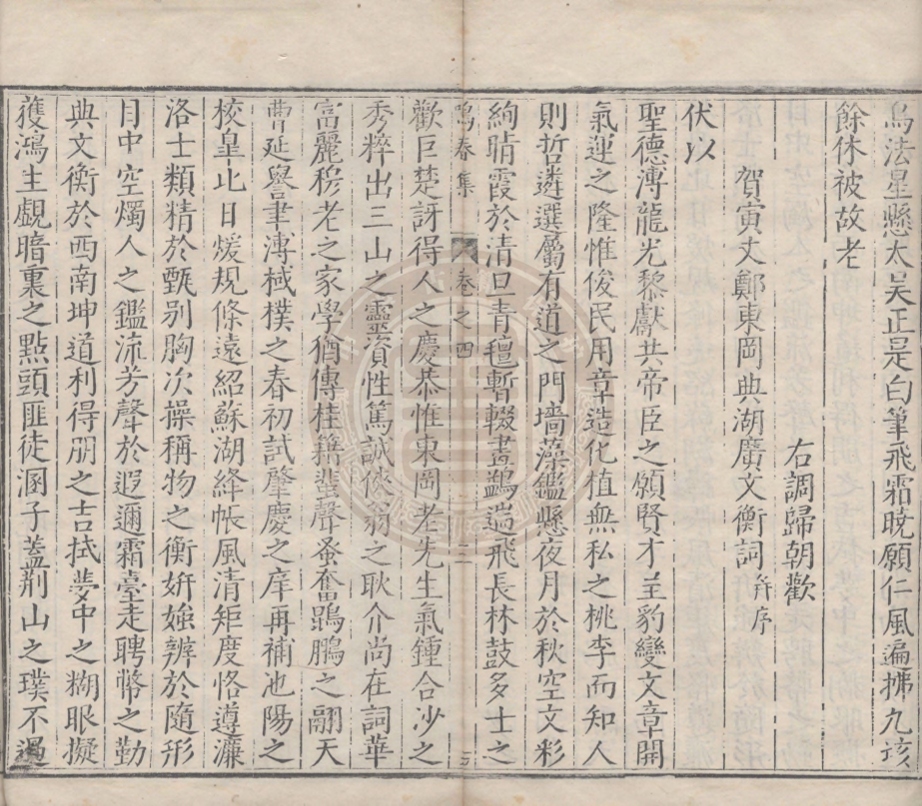 烏法星懸太吴正是白筆飛霜曉願仁風遍拂九垓
餘休被故老
右調歸朝歡
賀寅丈鄭東岡典湖廣文衡詞 并序
伏以
聖德溥龍光黎獻共帝臣之願賢才呈豹變文章開
氣運之隆惟俊民用章造化植無私之桃李而知人
則哲遴選屬有道之門墻藻鑑懸夜月於秋空文彩
絢晴霞於清旦青氊暫輟畫鷁遄飛長林鼓多士之
歡巨楚訝得人之慶恭惟東岡老先生氣鍾合沙之
秀粹出三山之靈資性篤誠俠翁之耿介尚在詞華
富麗稼老之家學猶傳桂籍蜚聲蚤奮鵾鵬之翮天
曹延譽聿溥棫樸之春初試肇慶之庠再補池陽之
校皐比日煖規條遠紹蘇湖絳帳風清矩度恪遵濂
洛士類精於甄别胸次操稱物之衡妍媸辨於隨形
目中空燭人之鑑流芳聲於遐邇霜臺走聘幣之勤
典文衡於西南坤道利得朋之吉拭夢中之糊眼擬
獲鴻生觑暗裏之點頭匪徒溷子蓋荆山之璞不遇
鳴春集 卷之四